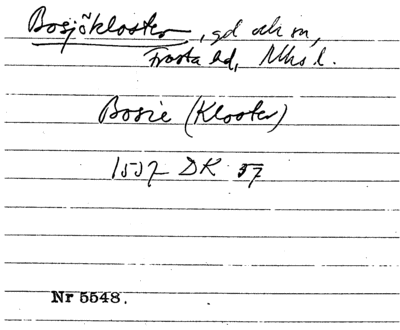 Bosjökloster, gd och sn,
Frosta hd, Mhs l.
Bosie (Kloster)
1537 DK 57
Nr 5548.